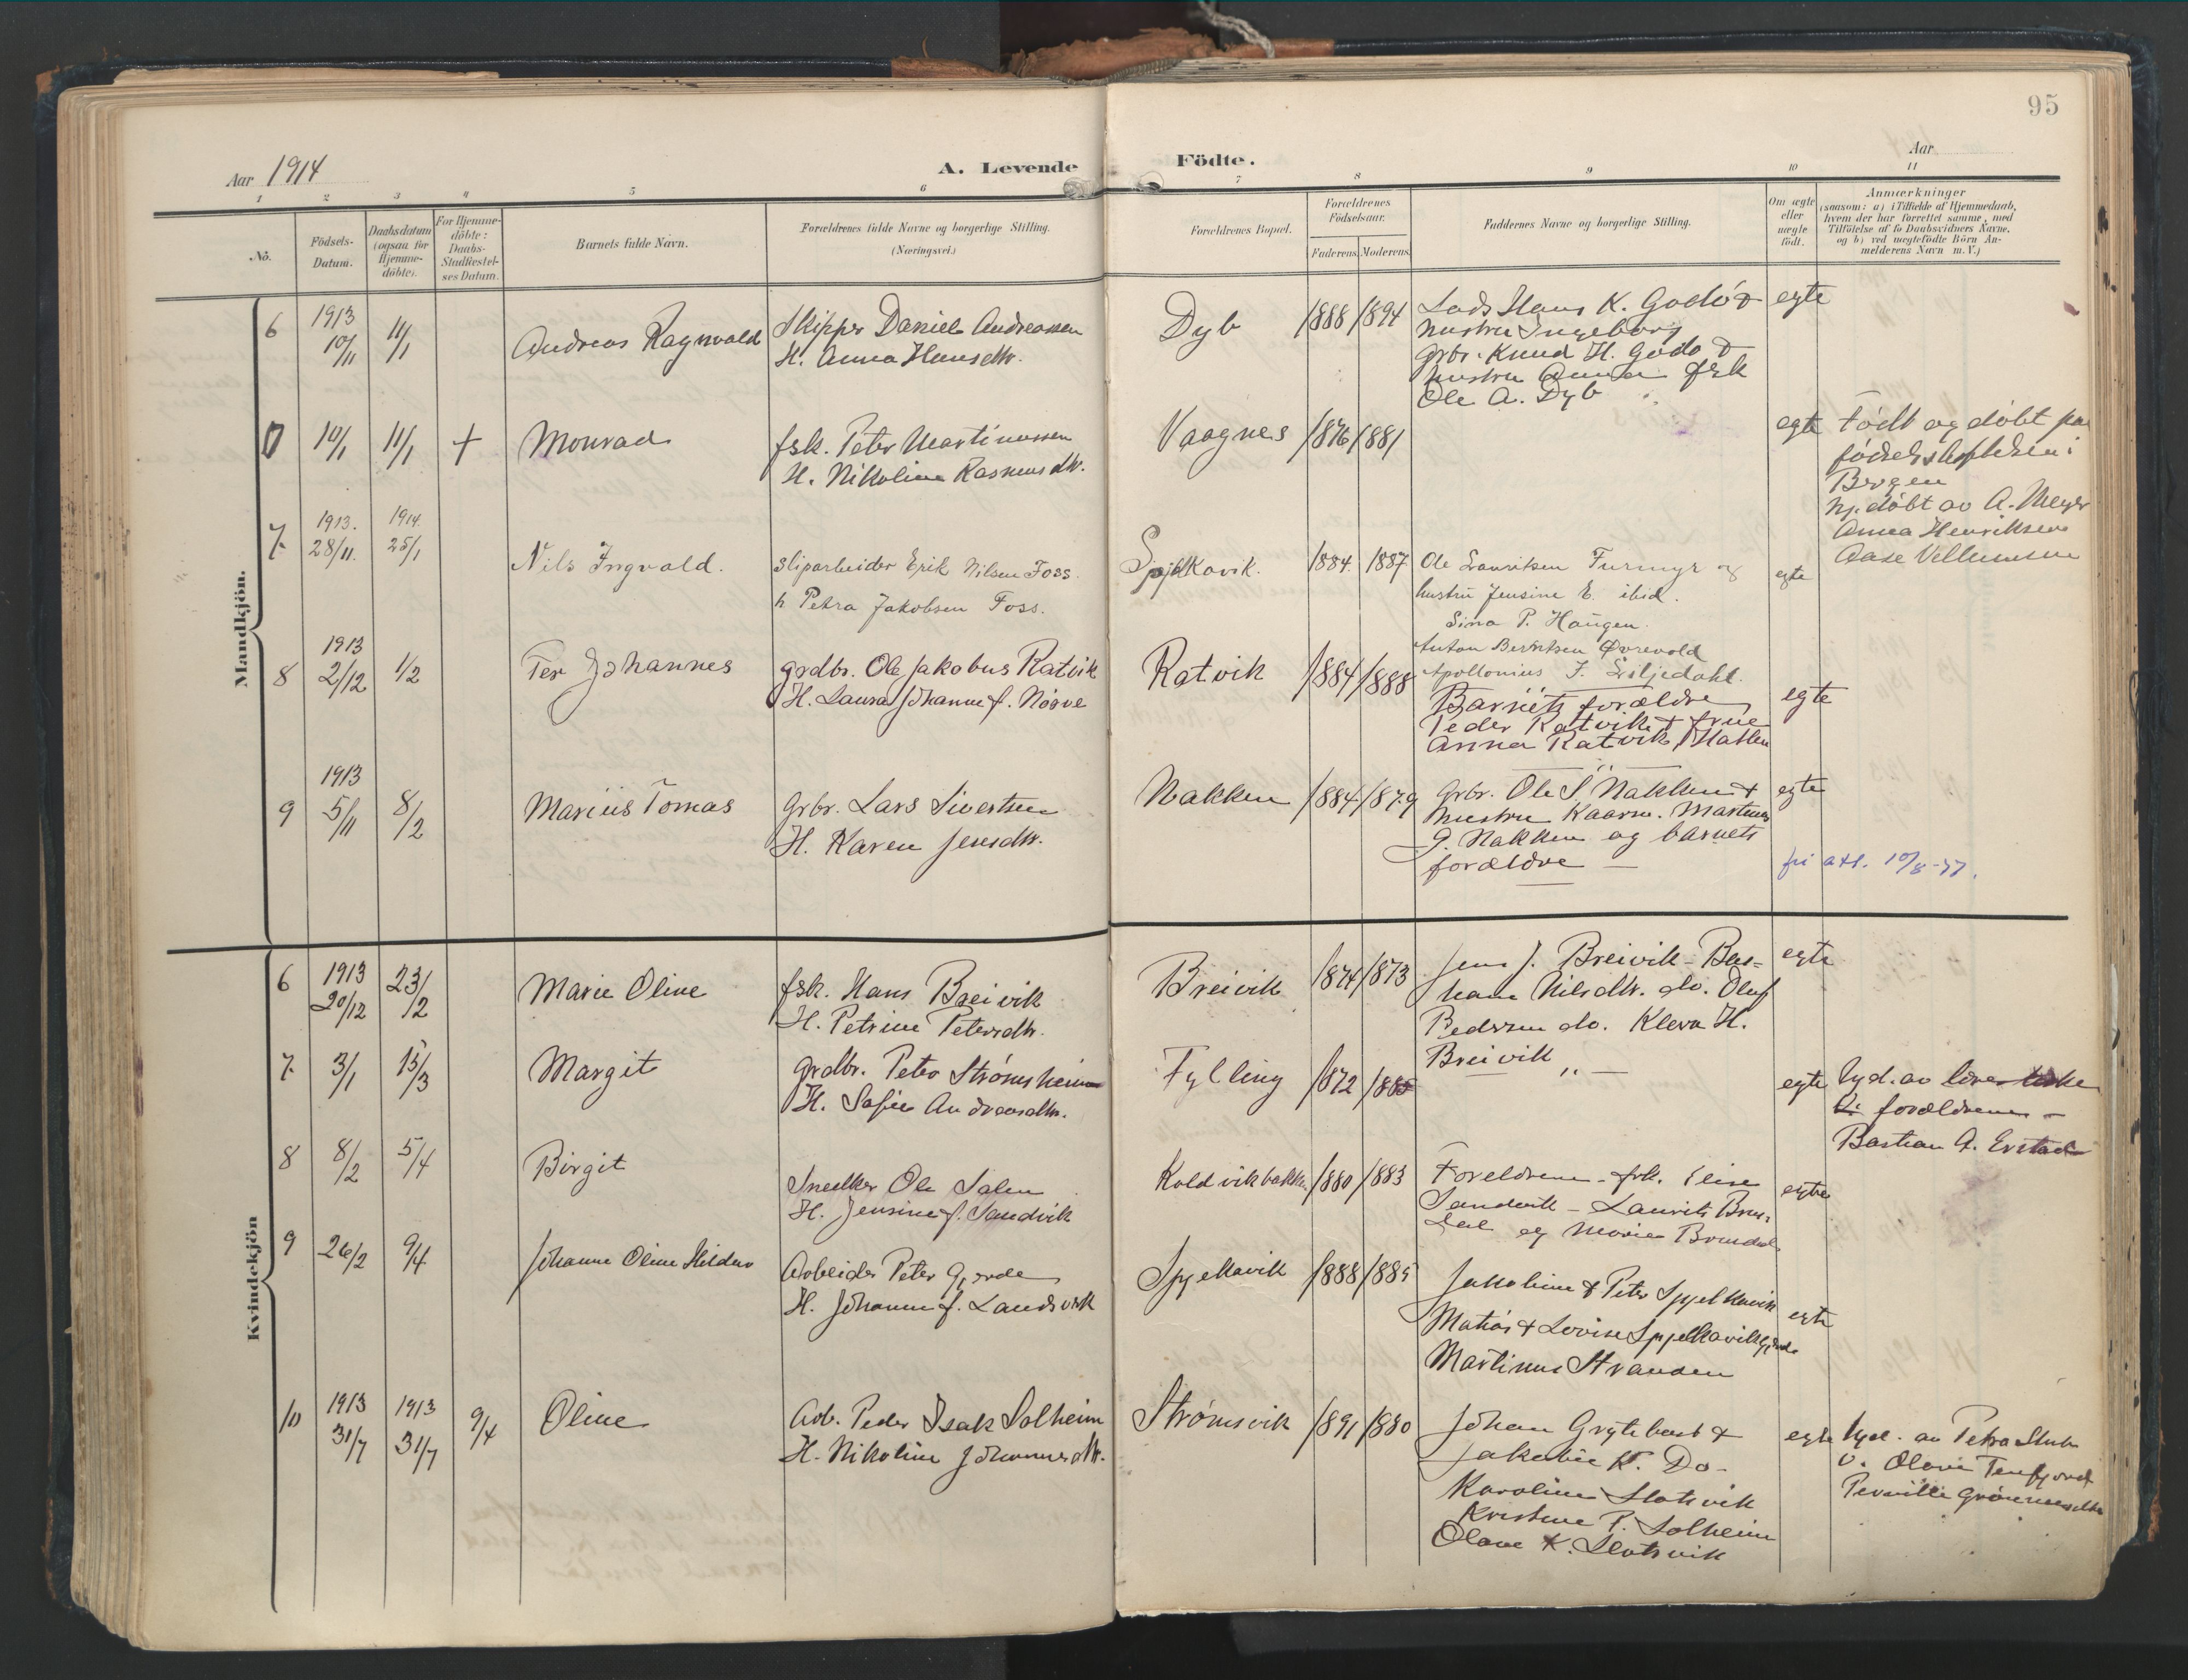 95
Aar 1914
A. Levende
Födte.
Aar
1 2 3 4 5 6 7 8 9 10 11
No.
Födsels-
Datum.
Daabsdatum
(ogsaa for
Hjemme-
döbte).
For Hjemme-
döbte:
Daabs-
Stadfæstel-
ses Datum.
Barnets fulde Navn.
Forældrenes fulde Navne og borgerlige Stilling.
(Næringsvei.)
Forældrenes Bopæl.
Forældrenes
Födselsaar.
Faderens.
Moderens.
Faddernes Navne og borgerlige Stilling.
Om ægte
eller
uægte
födt.
Anmærkninger
(saasom: a) i Tilfælde af Hjemmedaab,
hvem der har forrettet samme, med
Tilföielse af to Daabsvidners Navne,
og b) ved uægtefödte Börn An-
melderens Navn m. V.)
Mandkjön.
6 1913 10/11 11/1 Andreas Ragnvald
Skipper Daniel Andreassen
H. Anna Hansdtr.
Dyb 1888 1894
Lods Hans K. Godö &
hustru Ingeborg
grbr. Knud H. Godö &
hustru Anna fsk
Ole A. Dyb
egte
0 10/1 11/1 + Monrad
fsk. Peter Martinussen
H. Nikoline Rasmusdtr.
Vaagnes 1876 1881
egte
Födt og döbt paa
fødselsstiftelsen i
Bergen
hj.döbt av A. Meyer
Anna Henriksen
Aase Vellumsen
7. 1913. 28/11. 1914. 25/1 Nils Ingvald.
Sliparbeider Erik Nilsen Foss.
h Petra Jakobsen Foss.
Spjelkavik. 1884. 1887
Ole Lauritsen Furmyr og
hustru Jensine E. ibid.
Sina P. Haugen.
Anton Berntsen Øvrevold
Apollonius J. Liljedahl.
egte
8 1913 2/12 1/2 Per Johannes
grdbr. Ole Jakobus Ratvik
H. Laura Johanne f. Nörve
Ratvik 1884 1888
Barnets forældre
Peder Ratvik & frue
Anna Ratvik, Hatlen
egte
9 1913 5/11 8/2 Marius Tomas
Grbr. Lars Sivertsen
H. Karen Jensdtr.
Nakken 1884 1879
Grbr. Ole S Nakken &
hustru Kaarn. Martinus
G. Nakken og barnets
forældre —
egte
fri att. 10/8-37.
Kvindekjön
6 1913 20/12 23/2 Marie Oline
fsk. Hans Breivik
H. Petrine Petersdtr.
Breivik 1874 1873
Jens J. Breivik - Ber-
hane Nilsdtr. do. Oluf
Pedersen do. Klera H.
Breivik
egte
7. 3/1 15/3 Margit
grdbr. Peter Strömsheim
H. Sofie Andreasdtr.
Fylling 1872 1885
egte
hjd. av lærer
forældrene —
Bastian A. Erstad
8 8/2 5/4 Birgit
Snedker Ole Salen
H. Jensine f. Sandvik
Koldvikbakken 1880 1883
Foreldrene - frk. Elise
Sandvik - Laurits Brus-
dal og Marie Brusdal
egte
9 26/2 9/4 Johanne Oline Hildur
Arbeider Peter Gjerde
H. Johanne f. Landsvik
Spjelkavik 1888 1885
Jakobine & Peter Spjelkavik
Matias & Lovise Spjelkavik
Martinus Stranden
egte
10 1913 31/7 1913 31/7 9/4 Oline
Arb. Peder Isak Solheim
H. Nikoline Johannesdtr.
Strömsvik 1891 1880
Johan Grytebust &
Jakobie K. Do-
Karoline Slotsvik
Kristine P. Solheim
Olave K. Slotsvik
egte
hjd. av Petra Stub
v. Olave Tenfjord
Pernille